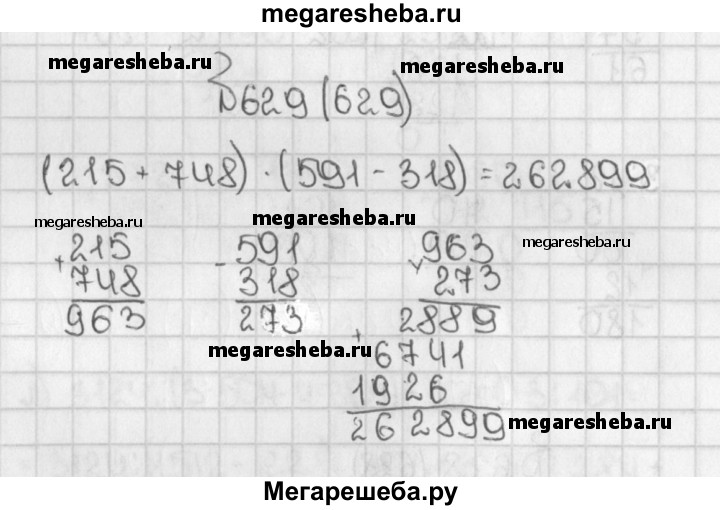 megaresheba.ru
megaresheba.ru megaresheba.ru
№629 (629)
(215 + 748) · (591 - 318) = 262899
megaresheba.ru megaresheba.ru megaresheba.ru
+ 215
748
963
- 591
318
273
× 963
273
2889
+ 6741
1926
262899
megaresheba.ru
megaresheba.ru
Мегарешеба.ру